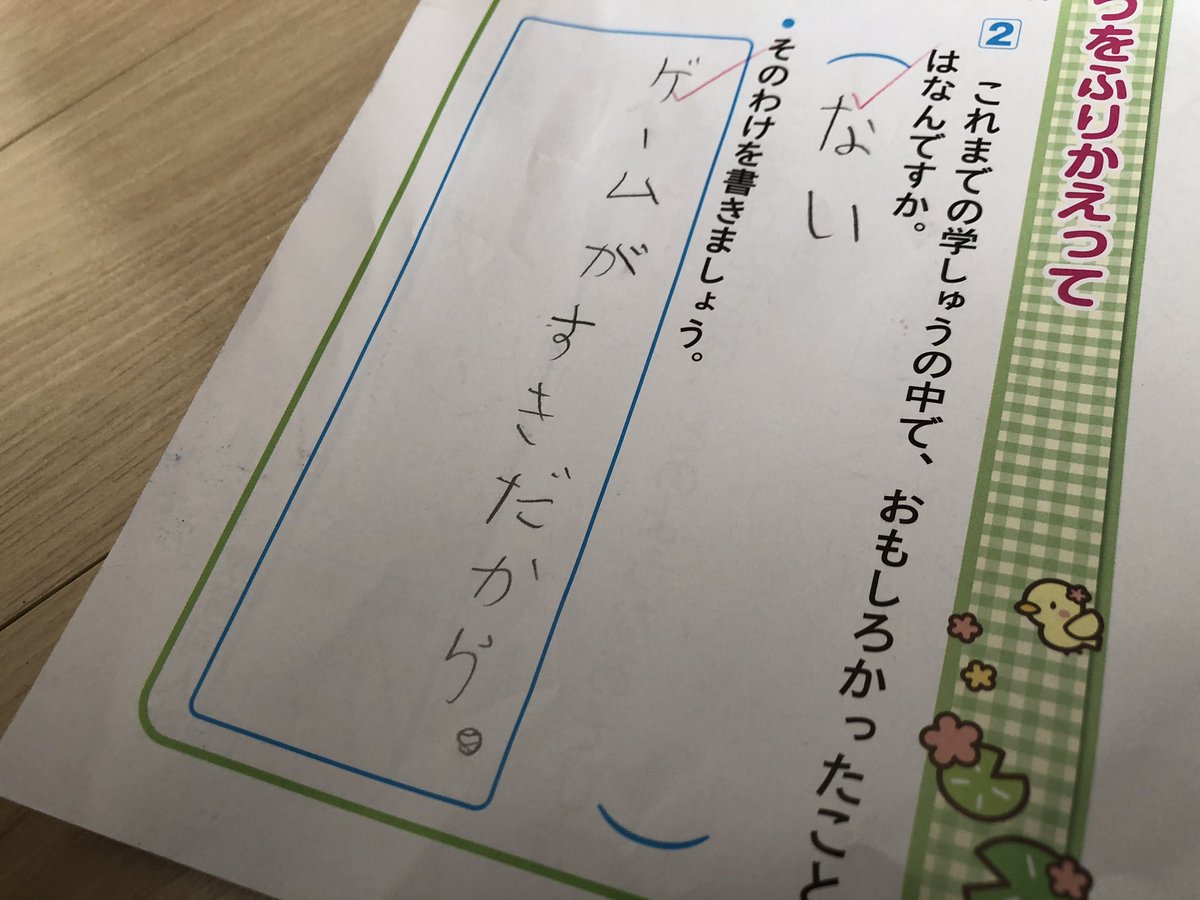 つをふりかえって
2 これまでの学しゅうの中で、おもしろかったこと
はなんですか。
(ない)
• そのわけを書きましょう。
ゲームがすきだから。